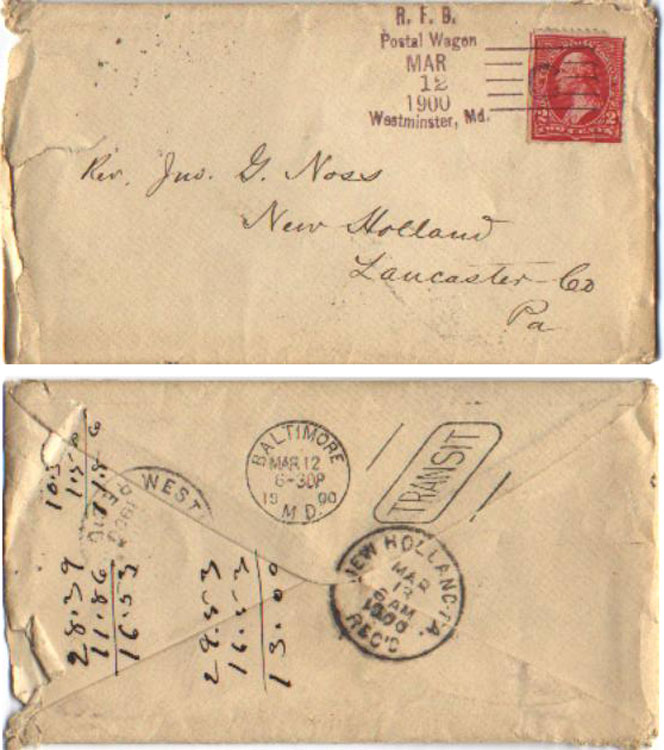 R. F. D.
Postal Wagon
MAR
12
1900
Westminster, Md.
2 TWO CENTS 2
Rev. Jno. G. Noss
New Holland
Lancaster Co
Pa
BALTIMORE
MAR 12
6-30P
19 00
MD.
TRANSIT
WEST
NEW HOLLAND, PA.
MAR
13
6AM
1900
REC'D
28.39
11.86
16.53
29.53
16.53
13.00